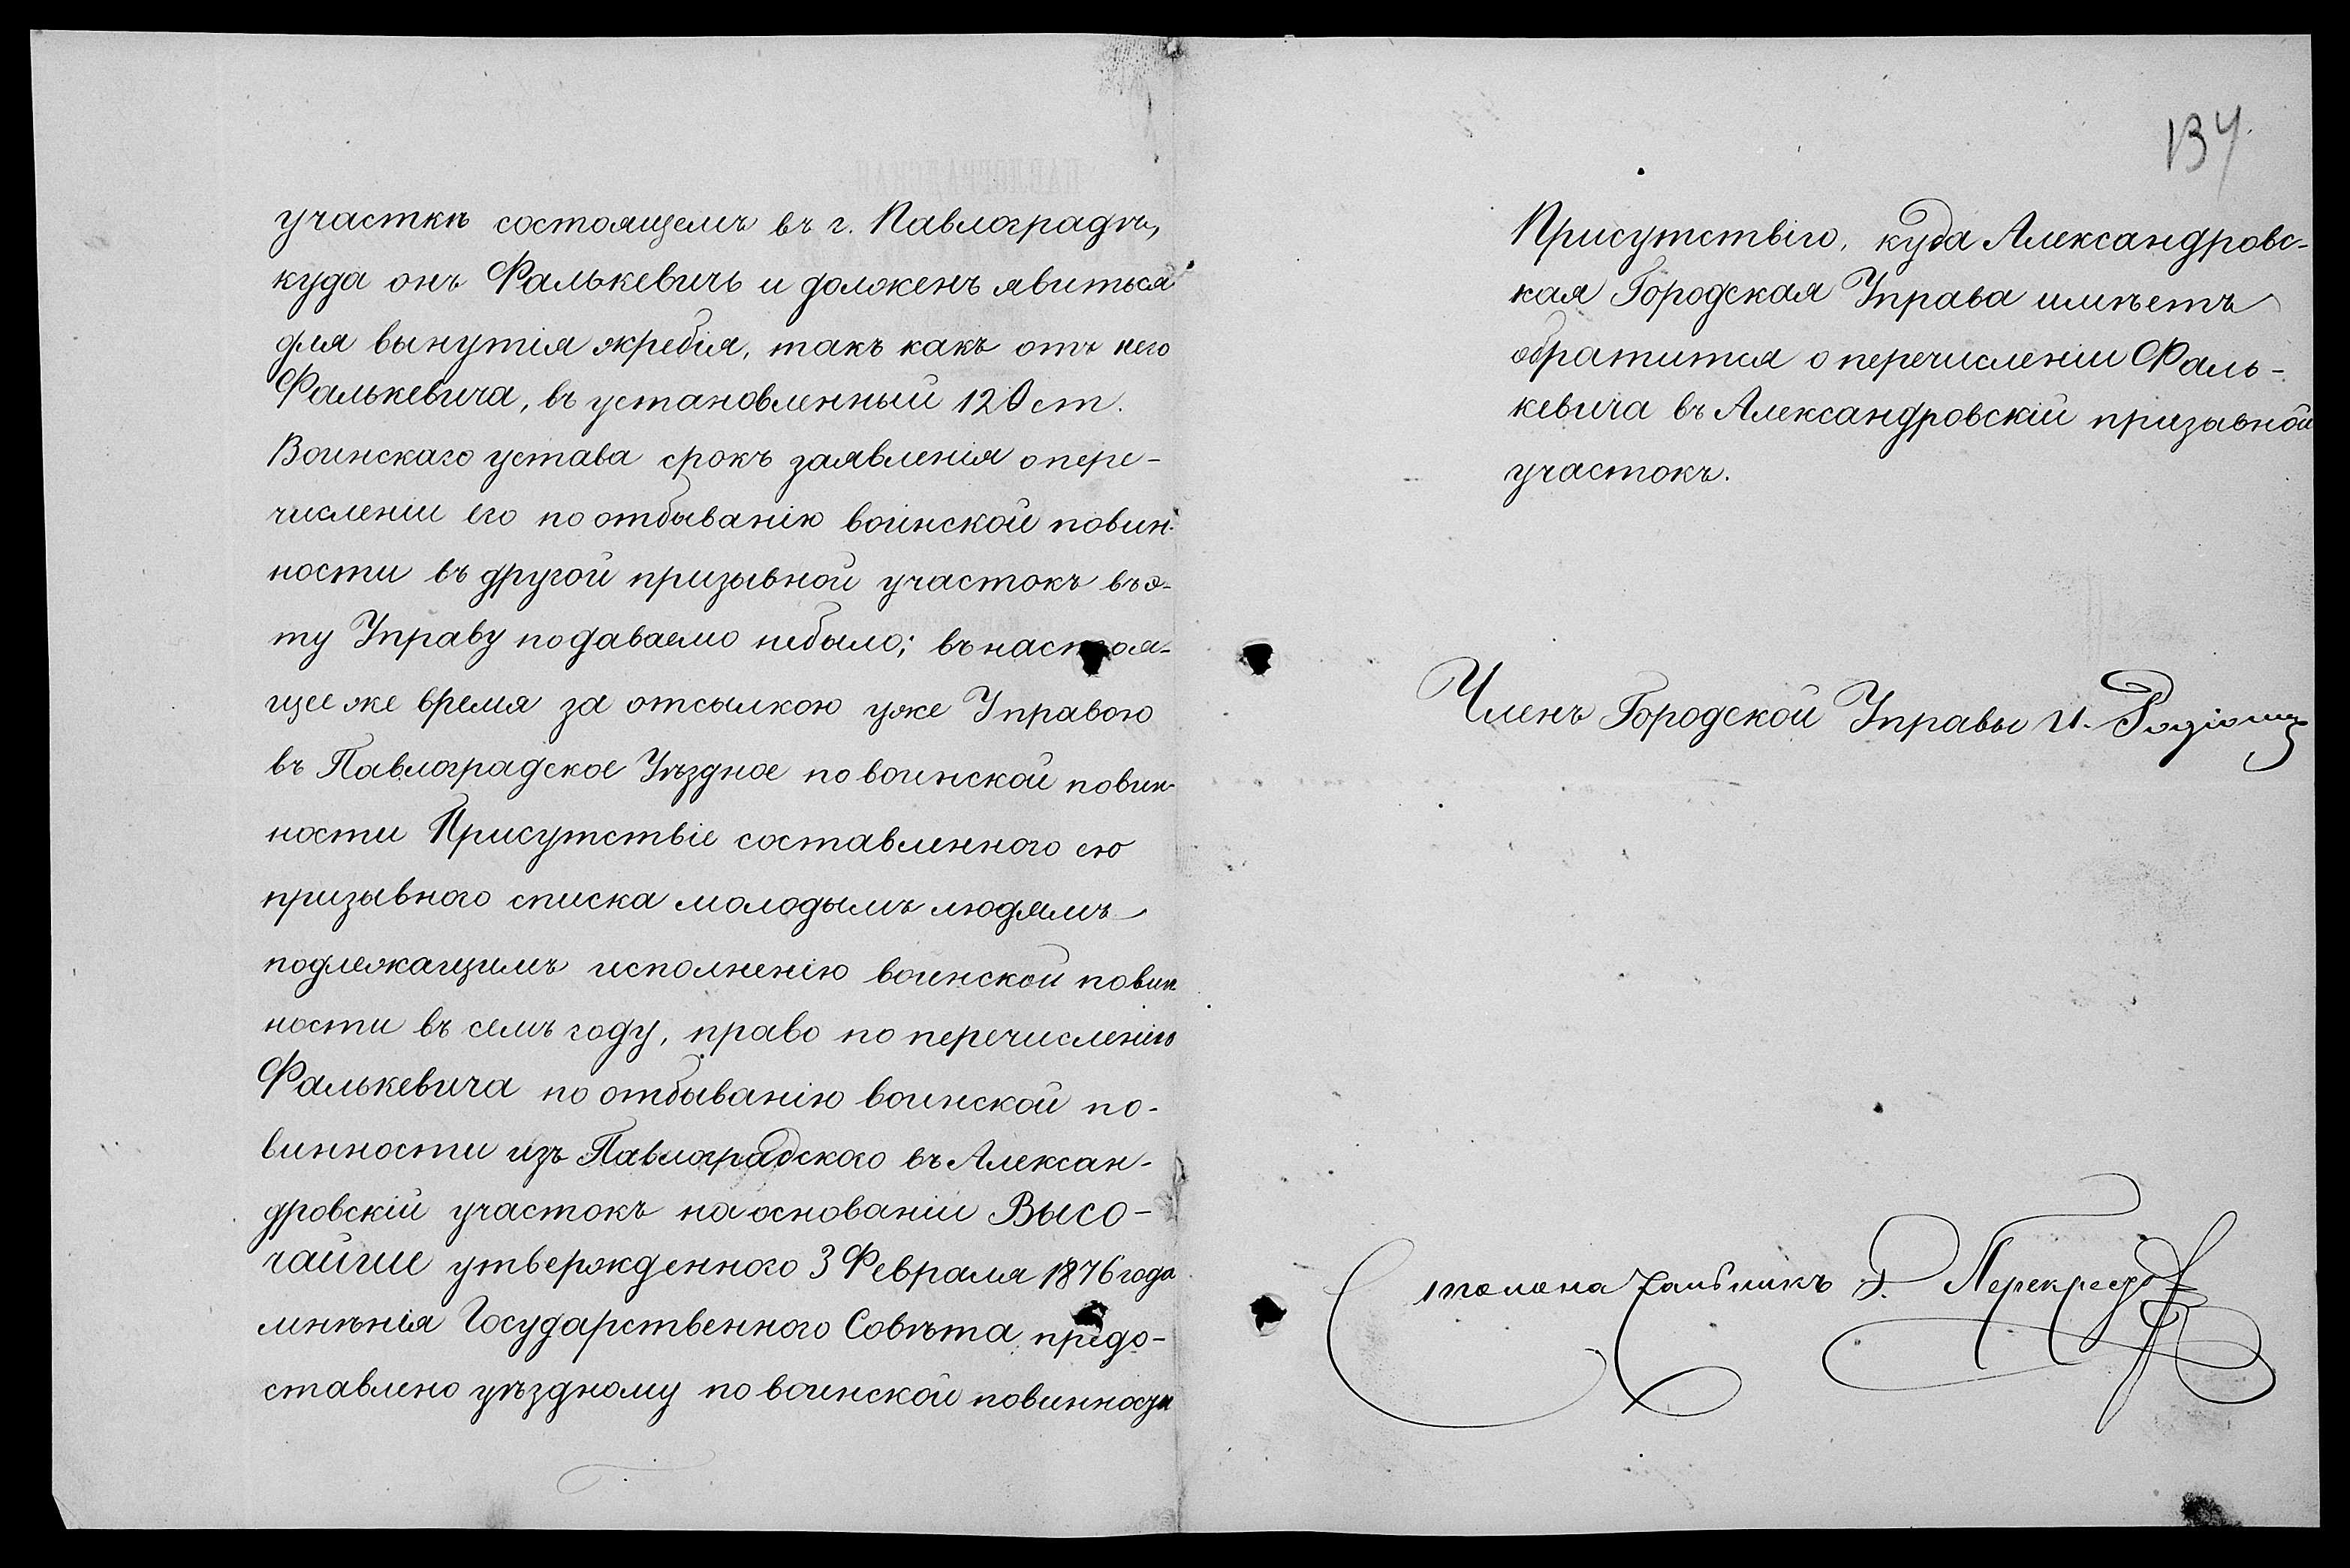 участкѣ состоящемъ въ г. Павлоградѣ,
куда онъ Фалькевичъ и долженъ явиться
для вынутія жребія, такъ какъ отъ него
Фалькевича, въ установленный 120 ст.
Воинскаго устава срокъ заявленія о пере-
численіи его по отбыванію воинской повин-
ности въ другой призывной участокъ въ э-
ту Управу подаваемо небыло; въ настоя-
щее же время за отсылкою уже Управою
въ Павлоградское Уѣздное по воинской повин-
ности Присутствіе составленного ею
призывного списка молодымъ людямъ
подлежащимъ исполненію воинской повин
ности въ семъ году, право по перечисленію
Фалькевича по отбыванію воинской по-
винности изъ Павлоградского въ Алексан-
дровскій участокъ на основаніи Высо-
чайше утвержденного 3 Февраля 1876 года
мнѣнія Государственного Совѣта, предо-
ставлено уѣздному по воинской повинности
134
Присутствію, куда Александровс-
кая Городская Управа имѣетъ
обратится о перечисленіи Фаль-
кевича въ Александровскій призывной
участокъ.
Членъ Городской Управы И.
Столоначальникъ